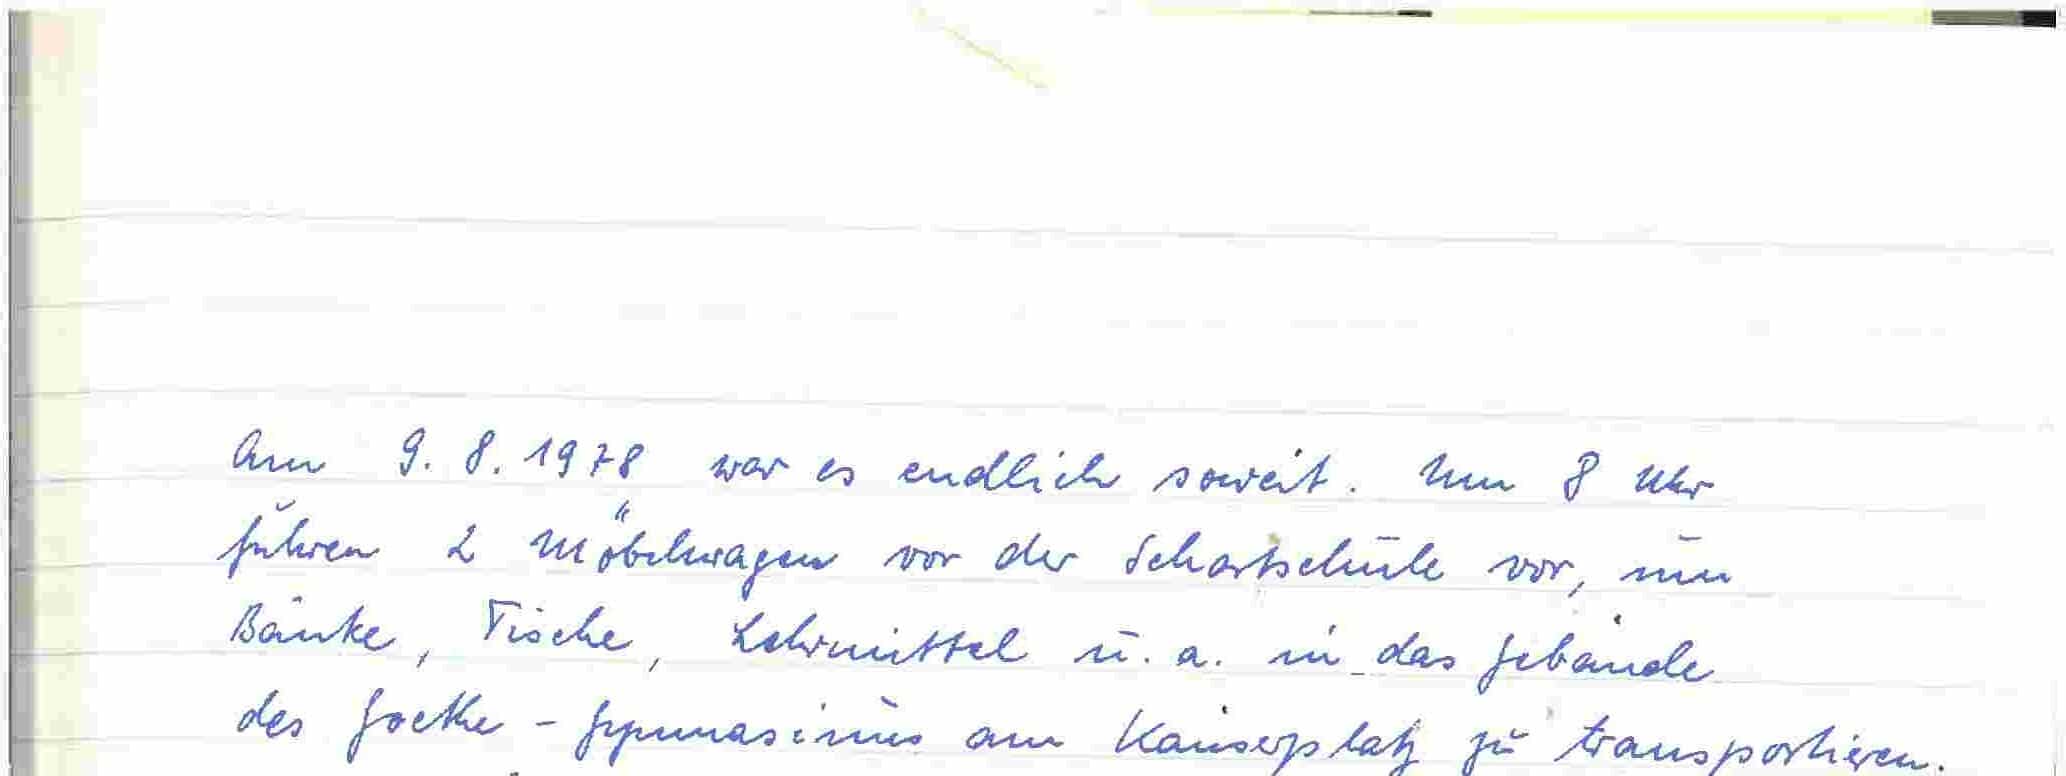 Am 9. 8. 1978 war es endlich soweit. Um 8 Uhr
fuhren 2 Möbelwagen vor der Schartschule vor, um
Bänke, Tische, Lehrmittel u. a. in das Gebäude
des Goethe - Gymnasiums am Kaiserplatz zu transportieren.